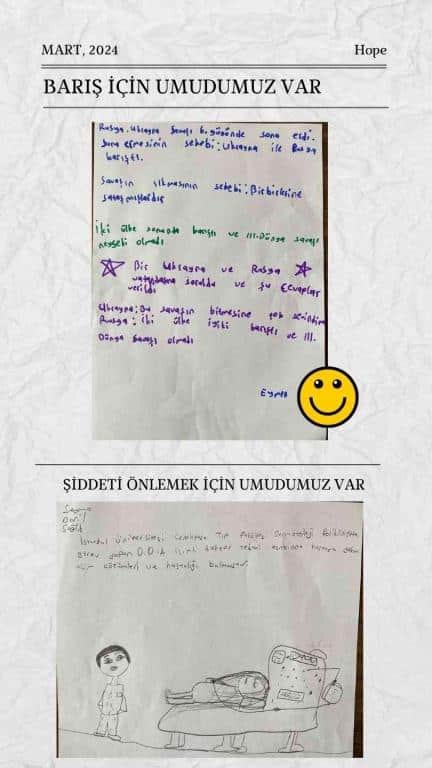 MART, 2024
Hope
BARIŞ İÇİN UMUDUMUZ VAR
Rusya. Ukrayna Savaşı bugününde sona erdi.
Sona ermesinin sebebi: Ukrayna ile Rusya
barıştı.
Savaşın çıkmasının sebebi: Birbirlerine
sataşmışlardır
İki ülke sonunda barıştı ve III. Dünya savaşı
neyseki olmadı
Bir Ukrayna ve Rusya
vatandaşına soruldu ve şu cevaplar
verildi
Ukrayna: Bu savaşın bitmesine çok sevindim
Rusya: İki ülke iyiki barıştı ve III.
Dünya Savaşı olmadı
ŞİDDETİ ÖNLEMEK İÇİN UMUDUMUZ VAR
Sağlık
İstanbul Üniversitesi Tıp
görev yapan D.D.
için çözümleri ve hastalığı bulmuştur.